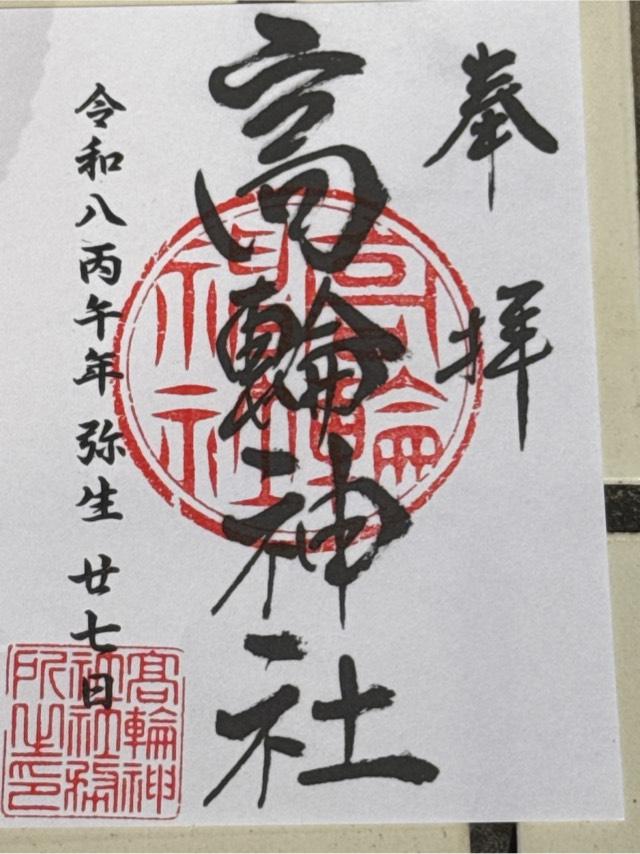 奉拝
高輪神社
令和八丙午年 弥生 廿七日
高輪神社
髙輪神社社務所之印